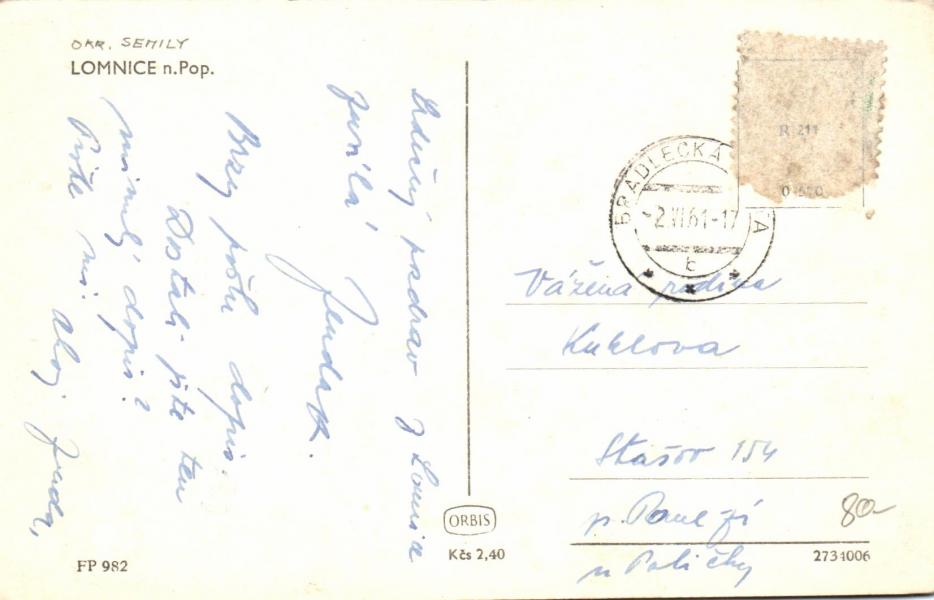 OKR. SEMILY
LOMNICE n.Pop.
Srdečný pozdrav z Lomnice
Jenda K.
Brzy pošlu dopis.
Dostali jste ten
minulý dopis?
Pište mi. Ahoj Jenda,
R 211
BRADLECKÁ
-2.VI.61-17
b
Vážená rodina
Kuklova
Stašov 154
p. Pomezí
u Poličky
80
ORBIS
Kčs 2,40
FP 982
2734006